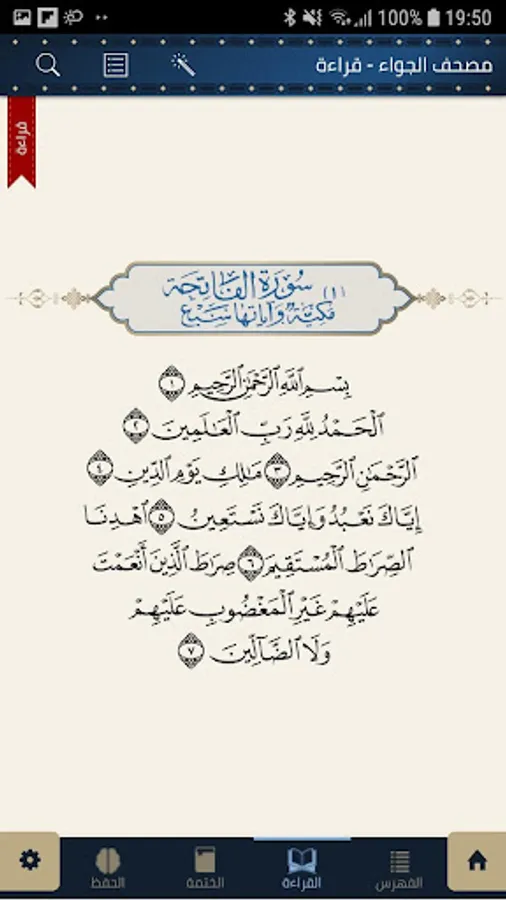 100% 19:50
مصحف الجواء - قراءة
قراءة
سُورَةُ الفَاتِحَة
(١) مَكِّيَّةٌ وَآيَاتُهَا سَبْع
بِسْمِ اللَّهِ الرَّحْمَٰنِ الرَّحِيمِ ١
الْحَمْدُ لِلَّهِ رَبِّ الْعَالَمِينَ ٢
الرَّحْمَٰنِ الرَّحِيمِ ٣ مَالِكِ يَوْمِ الدِّينِ ٤
إِيَّاكَ نَعْبُدُ وَإِيَّاكَ نَسْتَعِينُ ٥ اهْدِنَا
الصِّرَاطَ الْمُسْتَقِيمَ ٦ صِرَاطَ الَّذِينَ أَنْعَمْتَ
عَلَيْهِمْ غَيْرِ الْمَغْضُوبِ عَلَيْهِمْ
وَلَا الضَّالِّينَ ٧
الفهرس
القراءة
الختمة
الحفظ